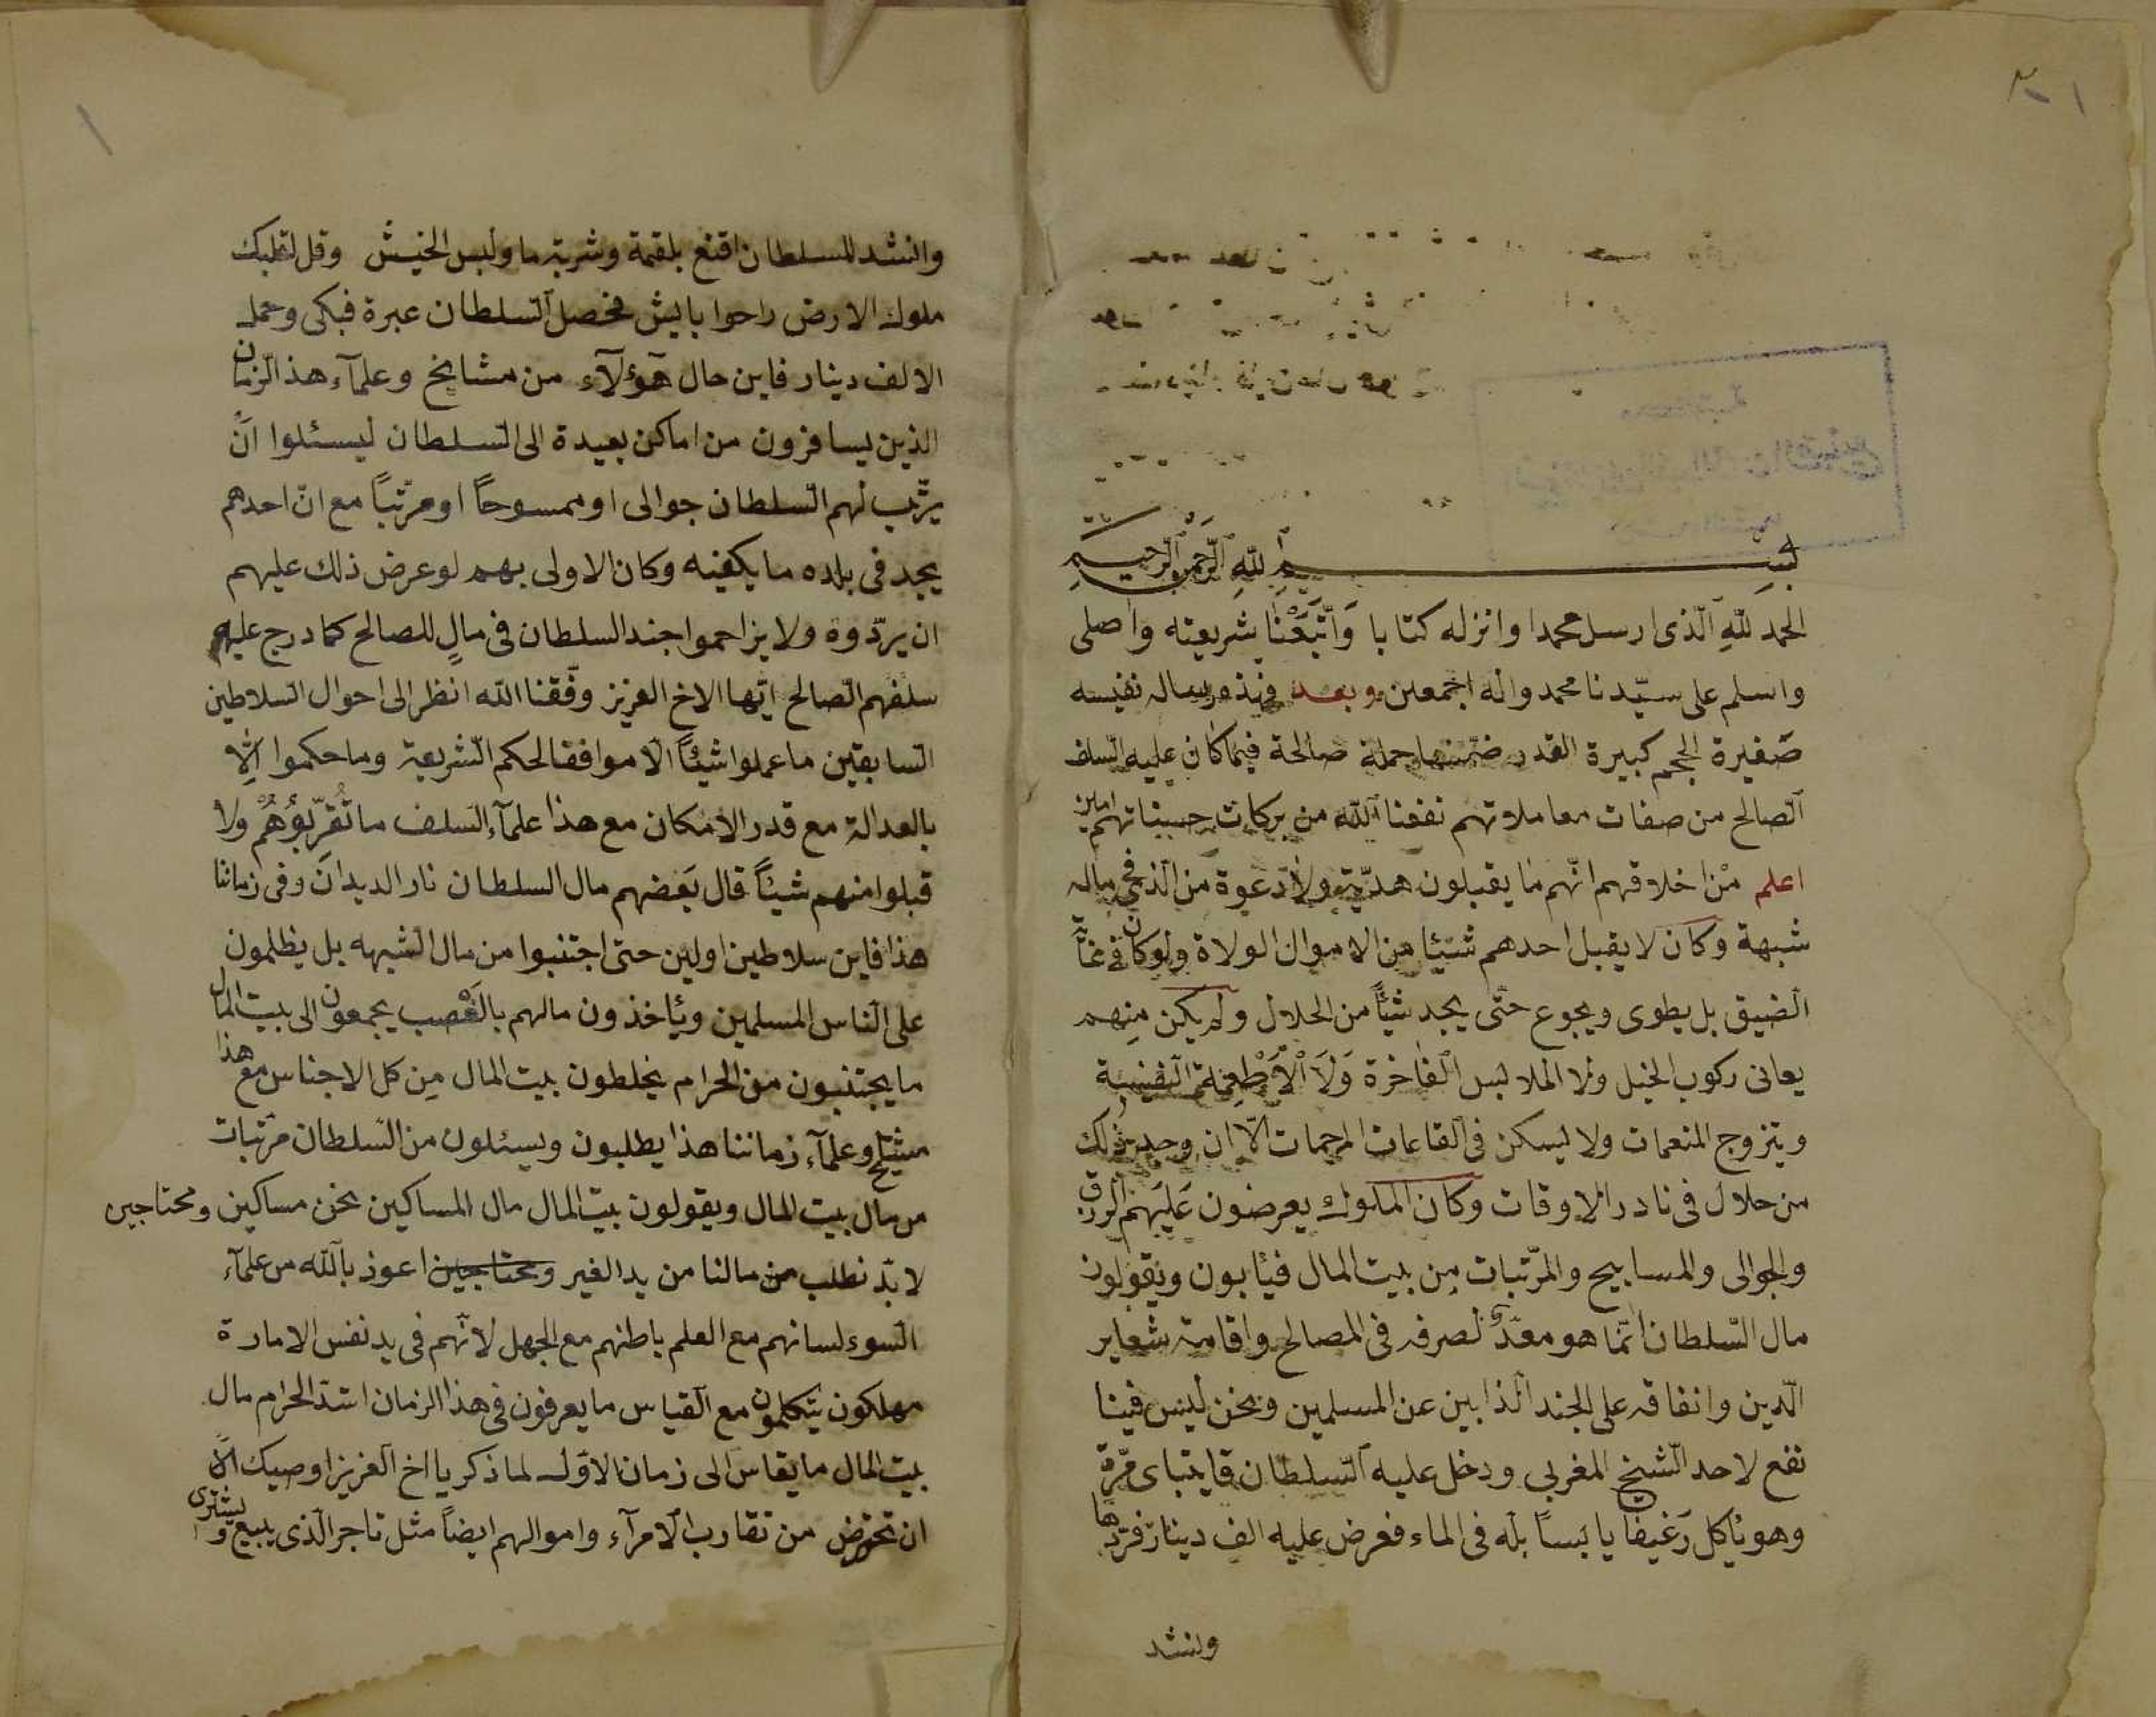 بسم الله الرحمن الرحيم
الحمد لله الذى ارسل محمدا وانزله كتابا وَاتَّبَعْنَا بشريعته واصلى
واسلم على سيّدنا محمد واله اجمعين وبعد فهذه رساله نفيسه
صَغيرة الحجم كبيرة القدر ضمنتها جملة صالحة فيما كان عليه السلف
الصالح من صفات معاملاتهم نفعنا الله من بركات حسناتهم امين
اعلم من اخلاقهم انّهم ما يقبلون هديّة ولا دعوة من الذى فى ماله
شبهة وكان لا يقبل احدهم شيئا من الاموال الولاة ولو كان فى غاية
الضيق بل يطوى ويجوع حتّى يجد شيئاً من الحلال ولم يكن مِنهم
يعانى ركوب الخيل ولا الملابس الفاخرة وَلَا الْاَطْعِمَة النفيسة
ويتزوج المنعمات ولا يسكن فى القاعات المرخمات الّا ان وجد ذلك
من حلال فى نادر الاوقات وكان الملوك يعرضون عَلَيهم الرزق
والجوالى والمسابيح والمرّتبات مِن بيت المال فيئابون ويقولون
مال السّلطان انّما هو معدّ لصرفه فى المصالح واقامة شعاير
الدّين وانفاقه على الجند الذابين عن المسلمين ونحن ليس فينا
نفع لاحد الشيخ المغربى ودخل عليه السّلطان قايتباى مَرّة
وهو ياكل رَغيفًا يابسًا بلّه فى الماء فعرض عليه الف دينار فردّها
وانشد
وانشد للسلطان اقنع بلقمة وشربة ما ولبس الخيش وقل لقلبك
ملوك الارض راحوا باليش فحصل السلطان عبرة فبكى وحمل
الالف دينار فاين حال هَؤلآء من مشايخ وعلمآء هذ الزمان
الذين يسافرون من اماكن بعيدة الى السلطان ليسئلوا انّ
يرتّب لهم السّلطان جوالى او ممسوحاً او مرتّباً مع انّ احدهم
يجد فى بلده ما يكفيه وكان الاولى بهم لو عرض ذلك عليهم
ان يردّوه ولا يزاحموا جند السلطان فى مالٍ للصالح كما درج عليه
سلفهم الصّالح ايّها الاخ العزيز وفّقنا الله انظر الى احوال السلاطين
السابقين ما عملوا شيئًا الّا موافقا لحكم الشّريعة وما حكموا الّا
بالعدالة مع قدر الامكان مع هذا علمآء السّلف ما تُقرّبُوهُمْ ولا
قبلوا منهم شيئاً قال بَعضهم مال السلطان نار الديدان وفى زماننا
هذا فاين سلاطين اولين حتى اجتنبوا من مال الشبهه بل يظلمون
على النّاس المسلمين ويئاخذون مالهم بالغَصب يجمعون الى بيت المال
ما يجتنبون من الحرام يخلطون بيت المال مِن كل الاجناس مع هذا
مشايخ وعلمآء زماننا هذا يطلبون ويسئلون من السّلطان مرّتبات
من مال بيت المال ويقولون بيت المال مال المساكين نحن مساكين ومحتاجين
لا بدّ نطلب من مالنا من يد الغير ومحتاجين اعوذ بالله من علمآء
السّوء لسانهم مع العلم باطنهم مع الجهل لانّهم فى يد نفس الامارة
مهلكون يتكلمون مع القياس ما يعرفون فى هذا الزمان اشدّ الحرام مال
بيت المال ما يقاس الى زمان الاوّل لما ذكر يا اخ العزيز اوصيك الآن
ان تحترض من تقارب الامرآء واموالهم ايضاً مثل تاجر الّذى يبيع ويشترى